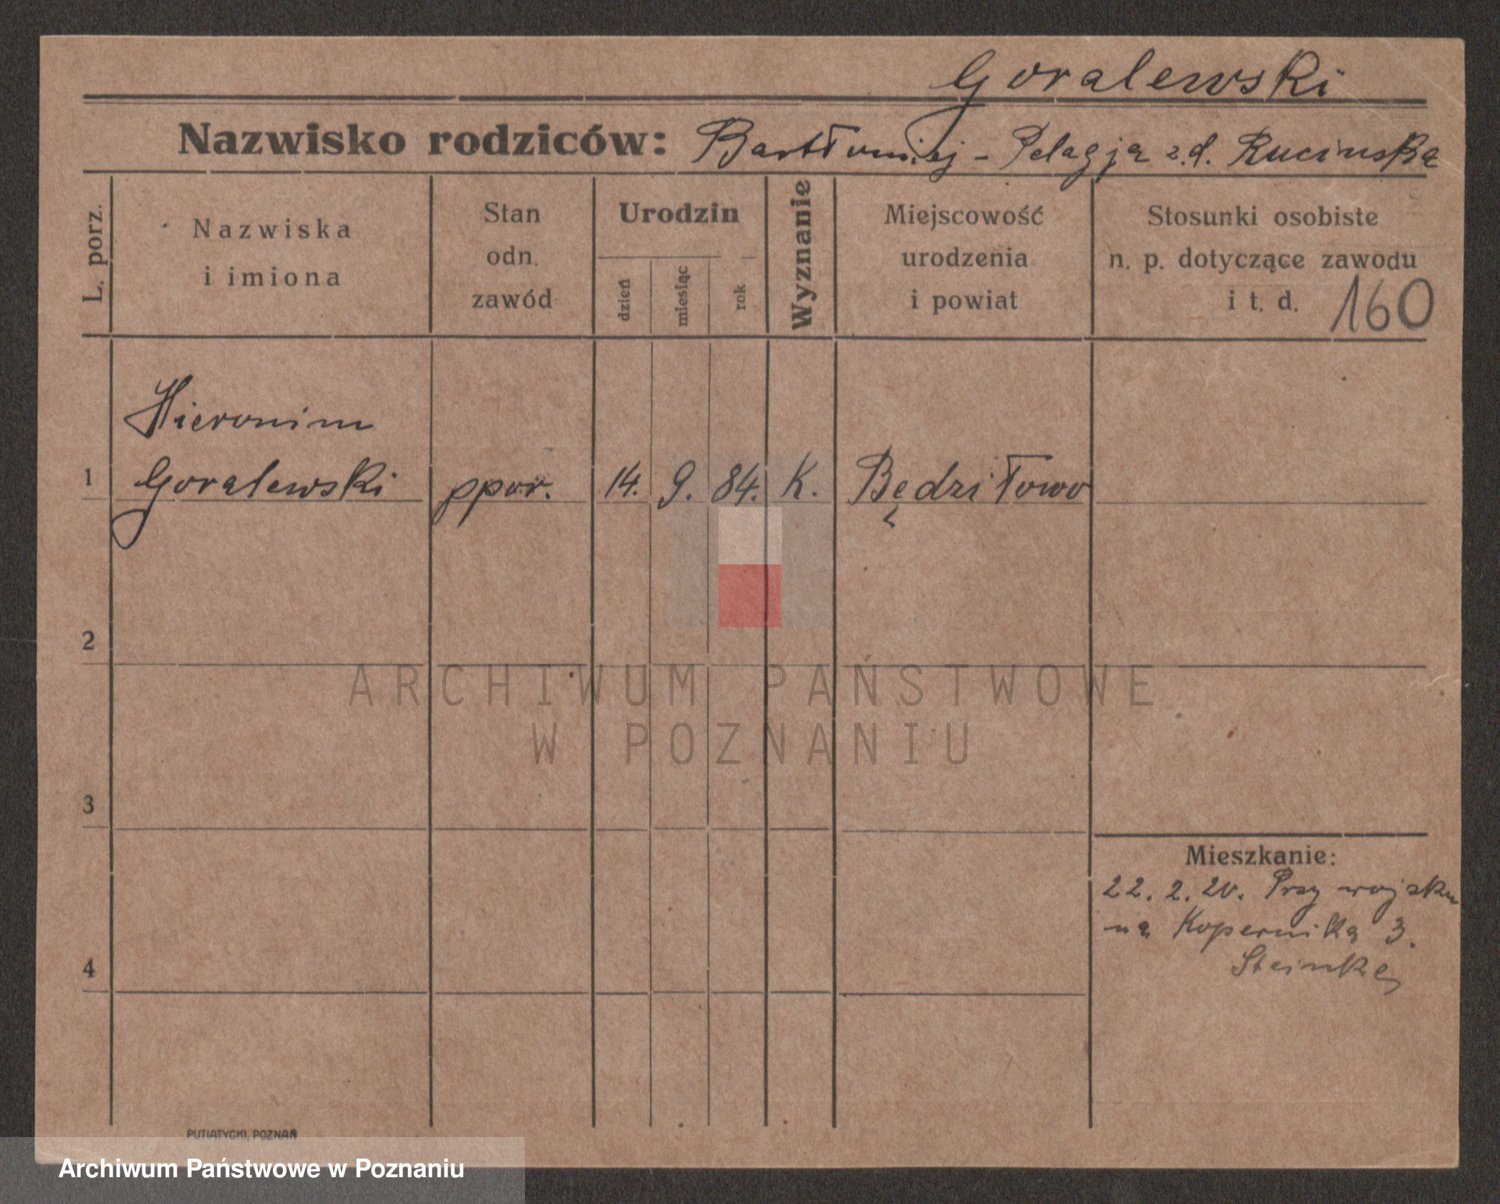 Goralewski
Nazwisko rodziców: Bartłomiej - Pelagja z.d. Rucinska
L. porz.
Nazwiska
i imiona
Stan
odn.
zawód
Urodzin
dzień
miesiąc
rok
Wyznanie
Miejscowość
urodzenia
i powiat
Stosunki osobiste
n. p. dotyczące zawodu
i t. d. 160
Hieronim
1 Goralewski ppor. 14. 9. 84. K. Będziłowo
2
3
4
Mieszkanie:
22. 2. 20. Przy wojsku
na Kopernika 3.
Steinke
PUTIATYCKI, POZNAŃ
ARCHIWUM PAŃSTWOWE
W POZNANIU
Archiwum Państwowe w Poznaniu